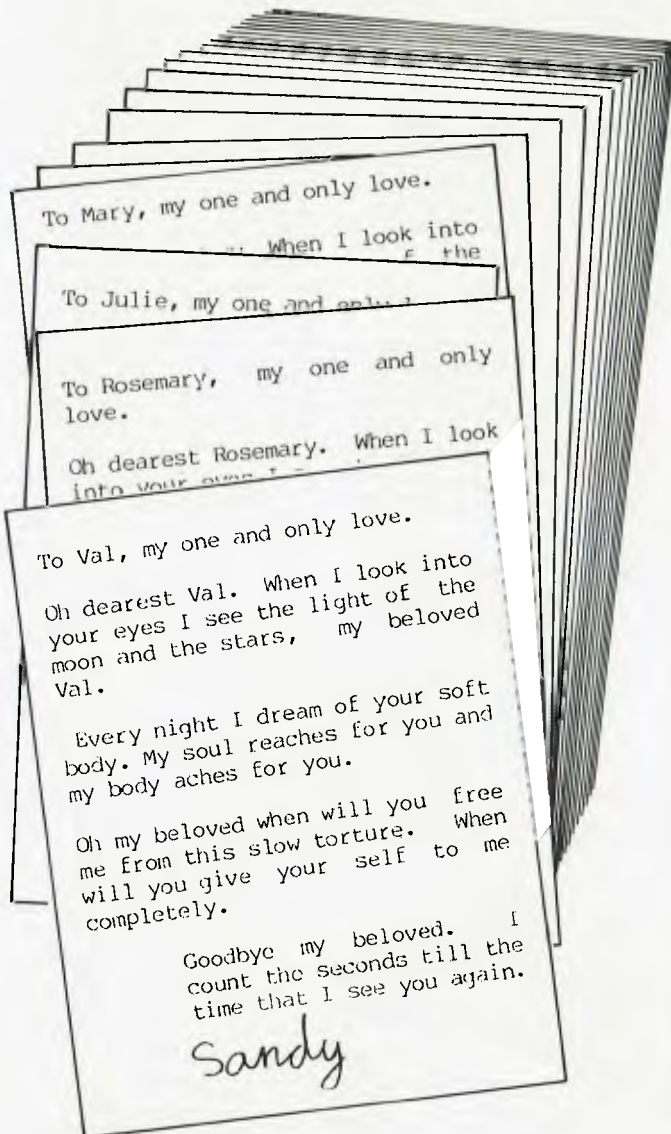 To Mary, my one and only love.
When I look into
the
To Julie, my one and only
To Rosemary, my one and only
love.
Oh dearest Rosemary. When I look
into your
To Val, my one and only love.
Oh dearest Val. When I look into
your eyes I see the light of the
moon and the stars, my beloved
Val.
Every night I dream of your soft
body. My soul reaches for you and
my body aches for you.
Oh my beloved when will you free
me from this slow torture. When
will you give your self to me
completely.
Goodbye my beloved. I
count the seconds till the
time that I see you again.
Sandy